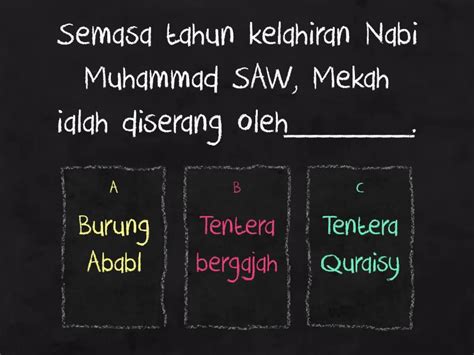 Semasa tahun kelahiran Nabi
Muhammad SAW, Mekah
ialah diserang oleh__________.
A
Burung
Ababl
B
Tentera
bergajah
C
Tentera
Quraisy